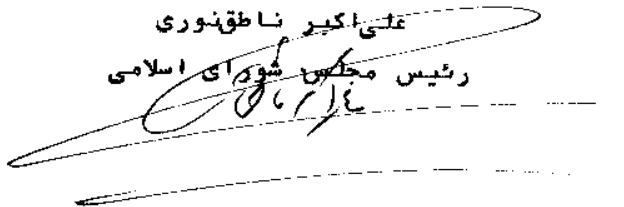 علی‌اکبر ناطق‌نوری
رئیس مجلس شورای اسلامی